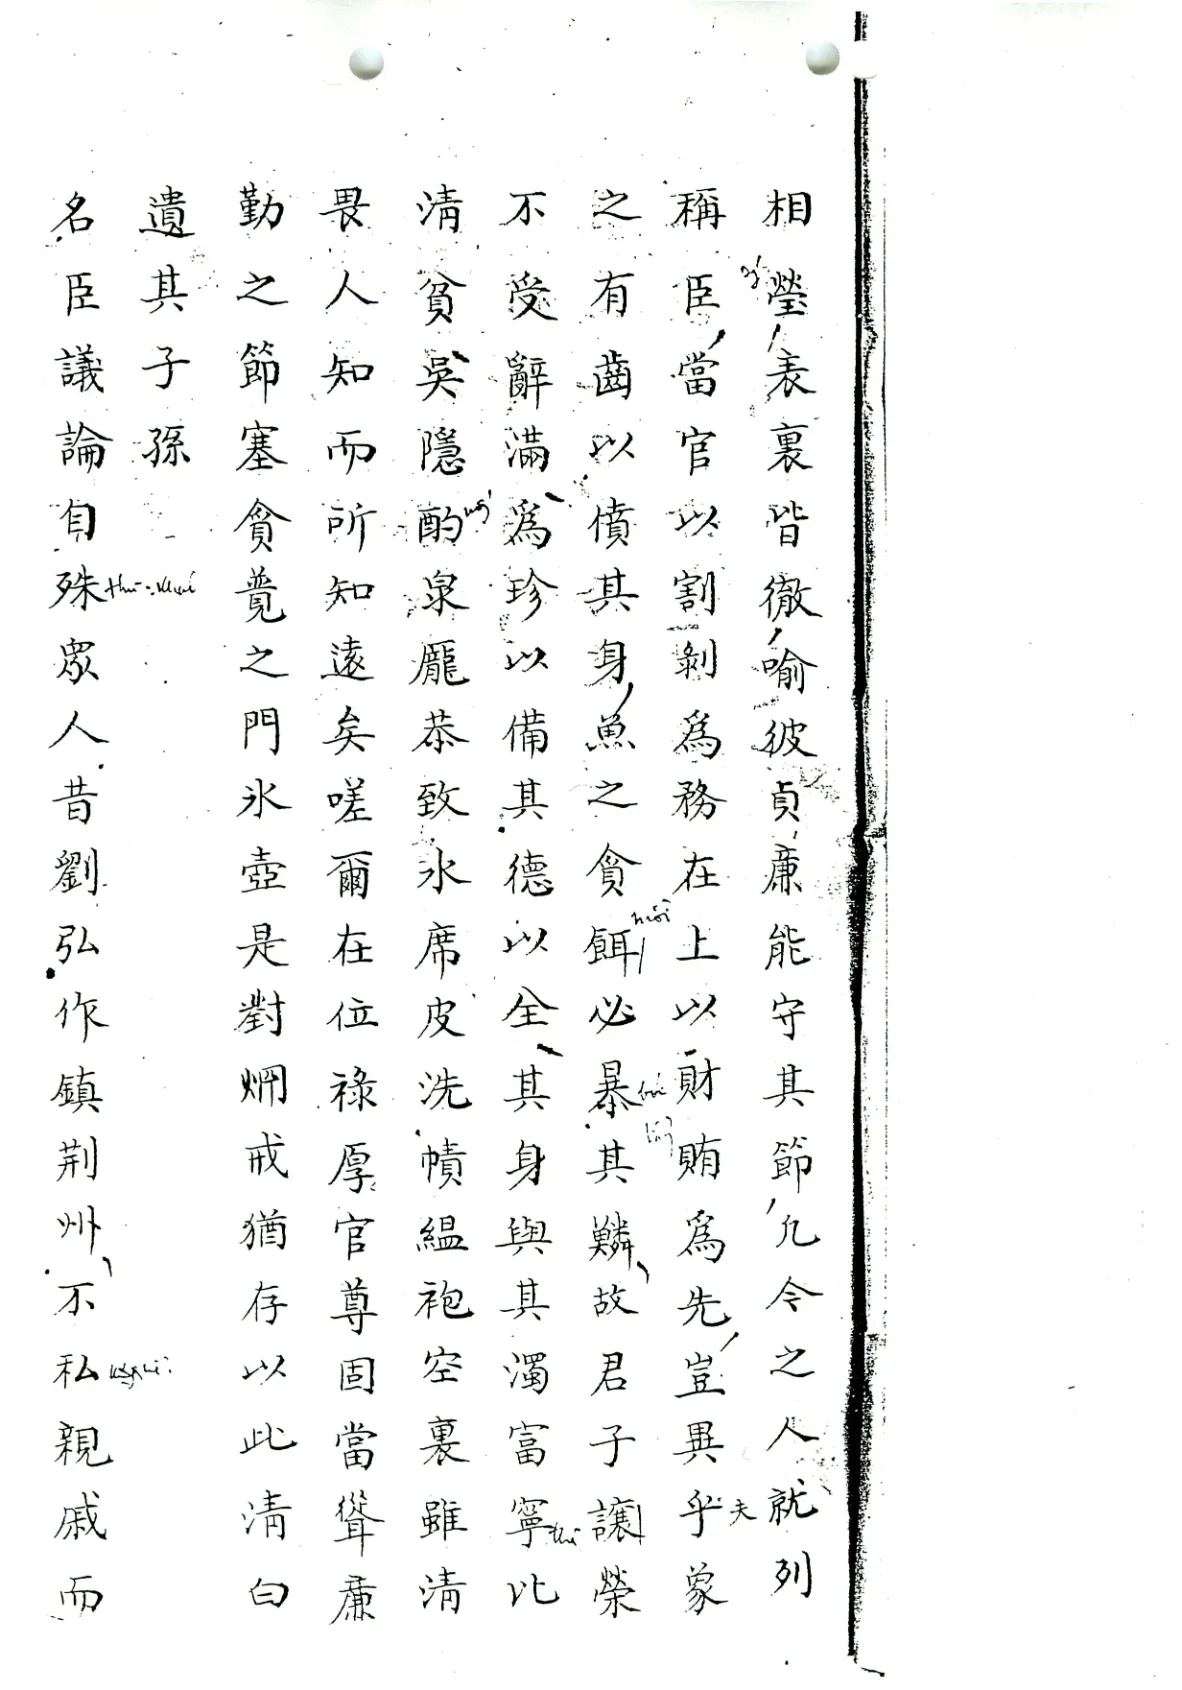 相瑩表裏皆徹喻彼貞廉能守其節凢今之人就列
稱臣當官以割剝爲務在上以財賄爲先豈異乎夫象
之有齒以僨其身魚之貪餌必暴其鱗故君子讓榮
不受辭滿爲珍以備其德以全其身與其濁富寧比
清貧吳隱酌泉龐恭致氷席皮洗幘縕袍空裏雖清
畏人知而所知遠矣嗟爾在位祿厚官尊固當聳廉
勤之節塞貪竟之門氷壺是對炯戒猶存以此清白
遺其子孫
名臣議論自殊眾人昔劉弘作鎮荆州不私親戚而